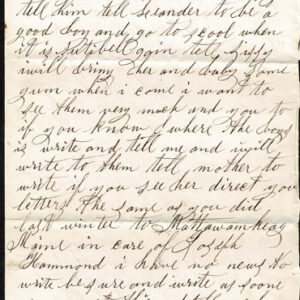 tell him tell Leander to be a
good boy and go to scool when
it is
tell
i will bring her and baby some
gum when i come i want to
see them very much and you to
if you know where the boys
is write and tell me and i will
write to them tell mother to
write if you see her direct you
letters the same as you did
last winter to Mattawamkeag
Maine in care of Joseph
Hammond i have no news to
write be sure and write as soone